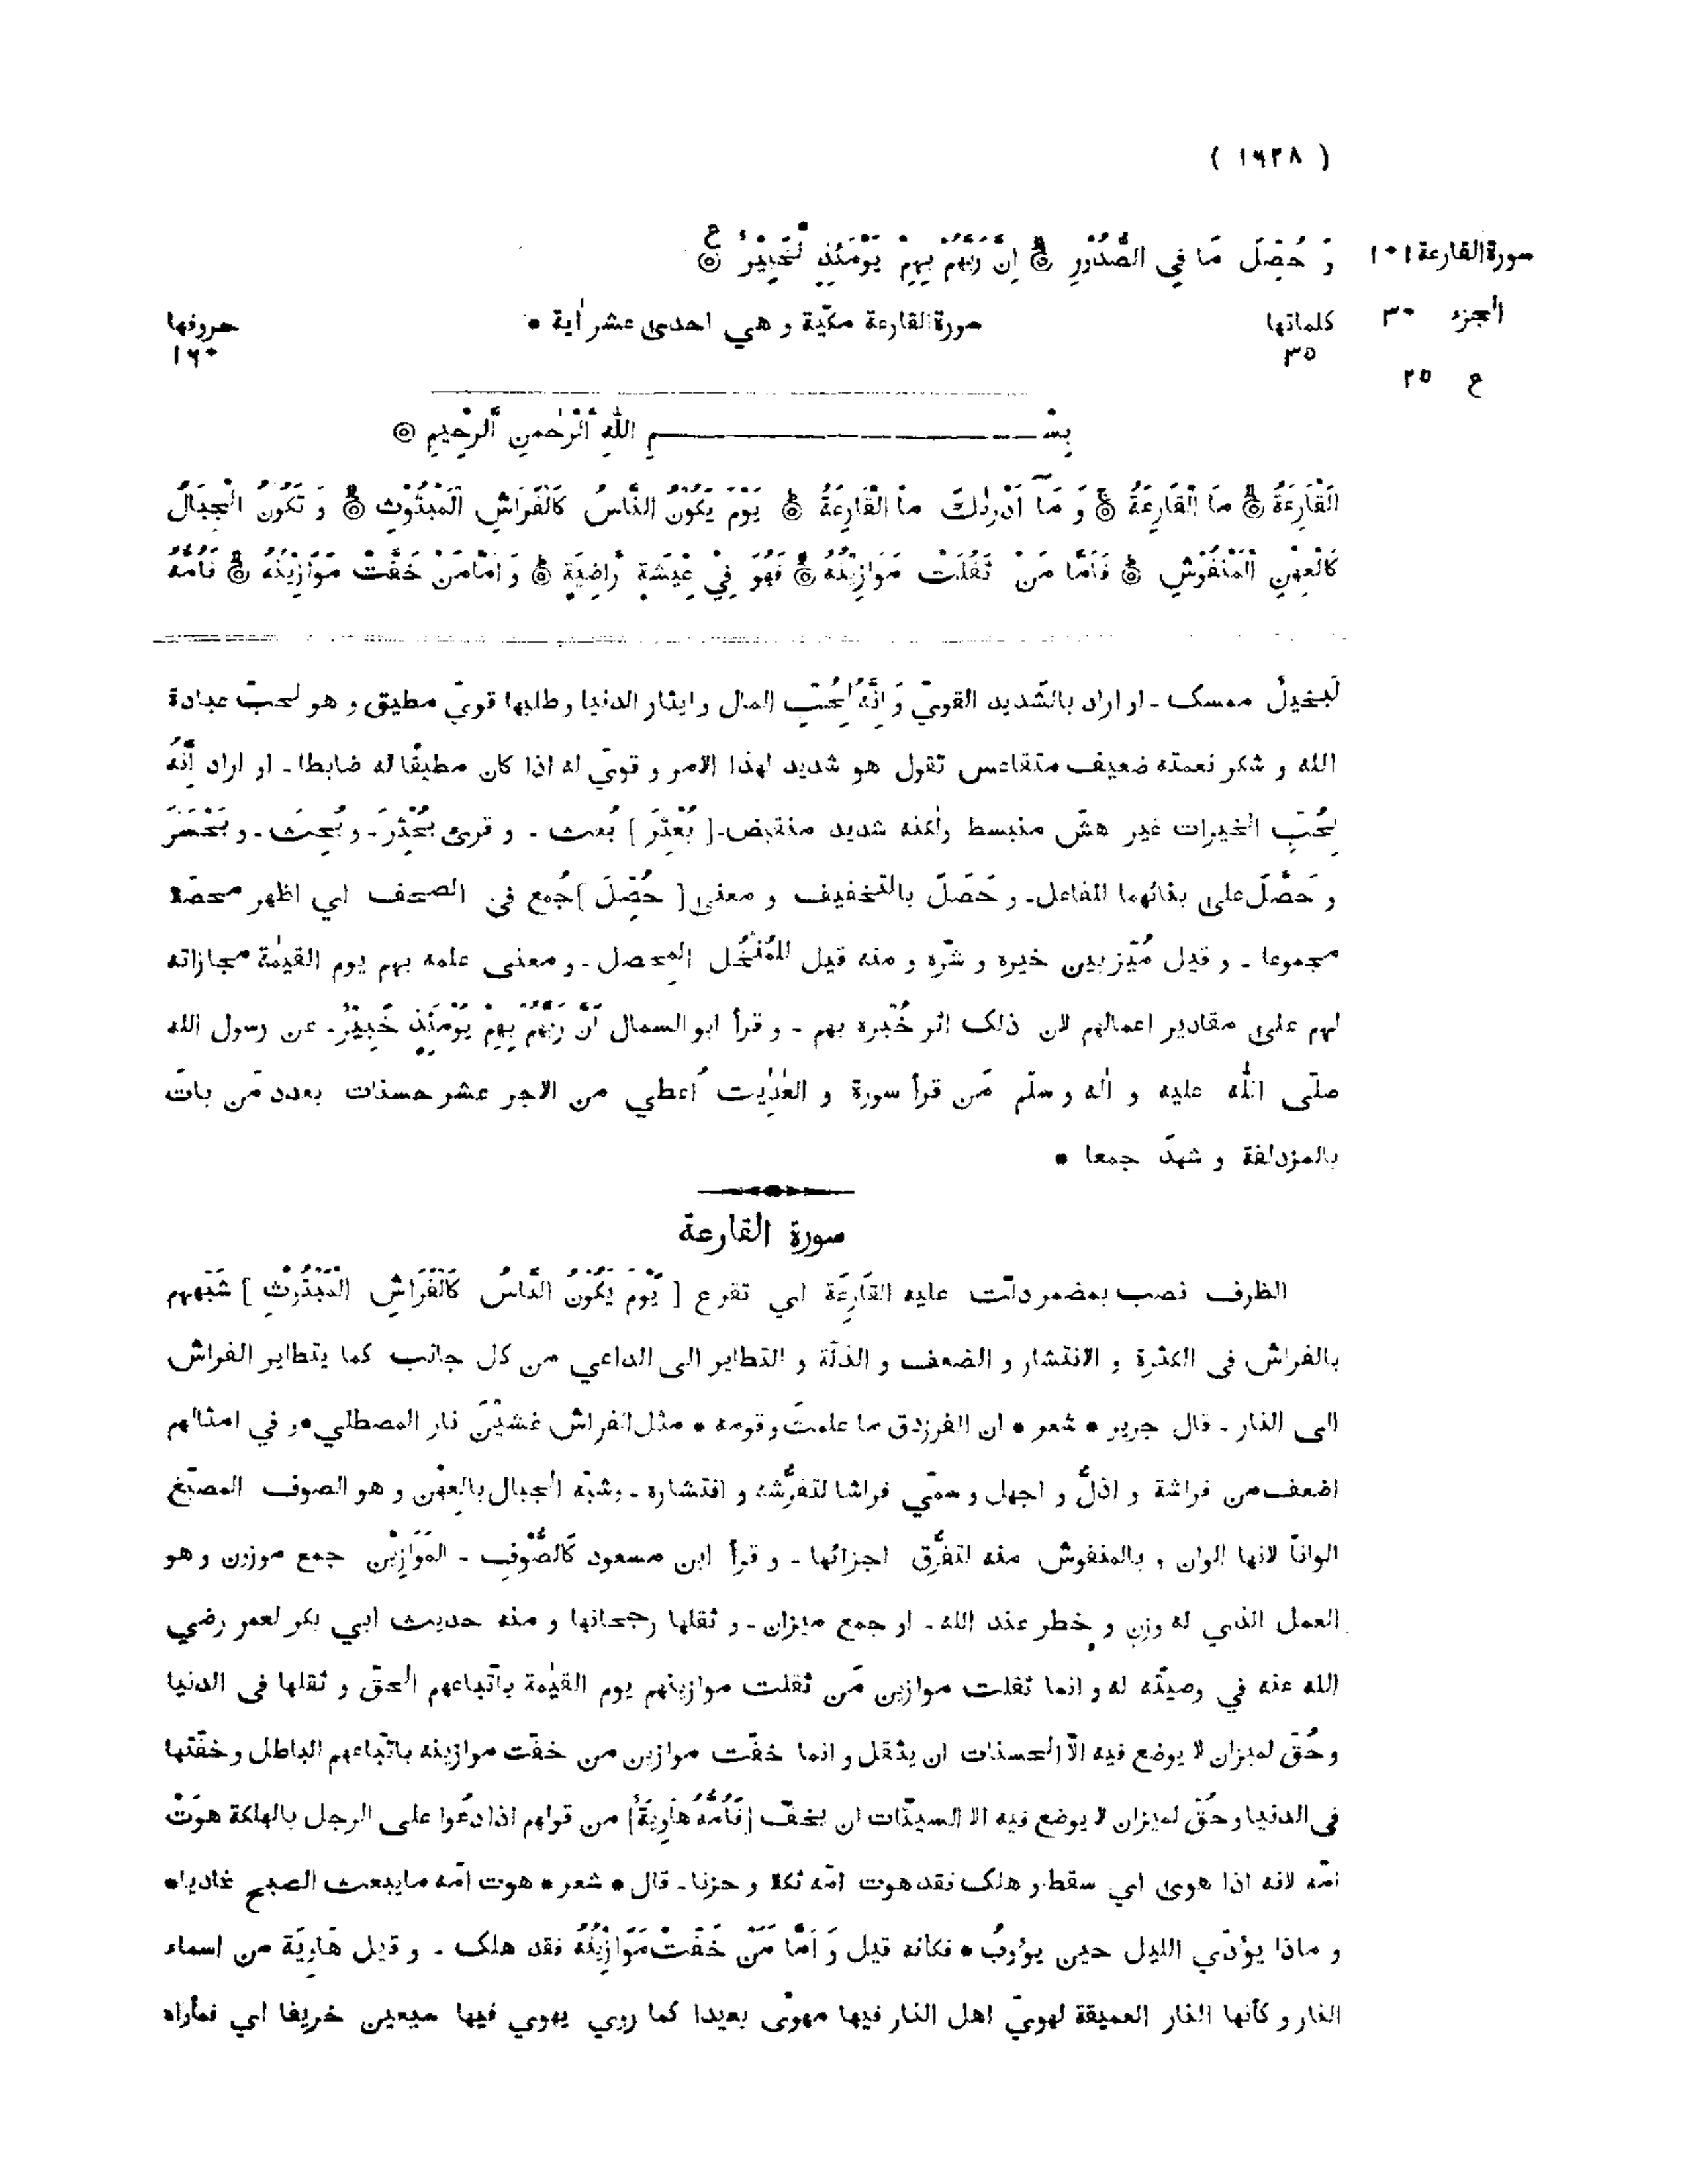 ( ١٦٢٨ )
سورة القارعة ١٠١
وَ حُصِّلَ مَا فِي الصُّدُوْرِ ۞ اِنَّ رَبَّهُمْ بِهِمْ يَوْمَئِذٍ لَّخَبِيْرٌ ۞ ع
الجزء ٣٠
كلماتها
٣٥
سورة القارعة مكية و هي احدى عشر أية *
حروفها
١٦٠
ع ٢٥
بِسْمِ اللّٰهِ الرَّحْمٰنِ الرَّحِيْمِ ۞
اَلْقَارِعَةُ ۞ مَا الْقَارِعَةُ ۞ وَ مَآ اَدْرٰىكَ مَا الْقَارِعَةُ ۞ يَوْمَ يَكُوْنُ النَّاسُ كَالْفَرَاشِ الْمَبْثُوْثِ ۞ وَ تَكُوْنُ الْجِبَالُ
كَالْعِهْنِ الْمَنْفُوْشِ ۞ فَاَمَّا مَنْ ثَقُلَتْ مَوَازِيْنُهُ ۞ فَهُوَ فِيْ عِيْشَةٍ رَّاضِيَةٍ ۞ وَ اَمَّا مَنْ خَفَّتْ مَوَازِيْنُهُ ۞ فَاُمُّهُ
لَبخيلٌ ممسك ـ او اراد بالشديد القويّ وَ اِنَّهُ لِحُبِّ المال و ايثار الدنيا و طلبها قويّ مطيق و هو لحبّ عبادة
الله و شكر نعمته ضعيف متقاعس تقول هو شديد لهذا الامر و قويّ له اذا كان مطيقًا له ضابطا ـ او اراد اَنَّهُ
لِحُبِّ الخيرات غير هشّ منبسط ولكنه شديد منقبض ـ [ بُعْثِرَ ] بُعث ـ و قرئ بُحْثِرَ ـ و بُحِثَ ـ و بَحْثَرَ
و حَصَّلَ على بنائهما للفاعل ـ و حَصَلَ بالتخفيف و معنى [ حُصِّلَ ] جُمع فى الصحف اي اظهر محصّلا
مجموعا ـ و قيل مُيّز بين خيره و شرّه و منه قيل للمُنْخُل المحصل ـ و معنى علمه بهم يوم القيٰمة مجازاته
لهم على مقادير اعمالهم لان ذلك اثر خُبْره بهم ـ و قرأ ابو السمال اَنَّ رَبَّهُمْ بِهِمْ يَوْمَئِذٍ خَبِيْرٌ ـ عن رسول الله
صلّى اللّٰه عليه و أله و سلّم مَن قرأ سورة و العٰدِيٰت اُعطي من الاجر عشر حسنات بعدد مَن باتَ
بالمزدلفة و شهدَ جمعا *
سورة القارعة
الظرف نصب بمضمر دلّت عليه القَارِعَة اي تقرع [ يَوْمَ يَكُوْنُ النَّاسُ كَالْفَرَاشِ الْمَبْثُوْثِ ] شَبّههم
بالفراش فى الكثرة و الانتشار و الضعف و الذلّة و التطاير الى الداعي من كل جانب كما يتطاير الفراش
الى النار ـ قال جرير * شعر * ان الفرزدق ما علمتَ و قومه * مثل الفراش غشيْنَ نار المصطلي * و في امثالهم
اضعف من فراشة و اذلّ و اجهل و سمّي فراشا لتفرُّشه و انتشاره ـ وشبّه الجبال بالعِهْن و هو الصوف المصبّغ
الوانًا لانها الوان و بالمنفوش منه لتفرُّق اجزائها ـ و قرأ ابن مسعود كَالصُّوْفِ ـ المَوَازِيْن جمع موزون و هو
العمل الذي له وزن و خطر عند الله ـ او جمع ميزان ـ و ثقلها رجحانها و منه حديث ابي بكر لعمر رضي
الله عنه في وصيّته له و انما ثقلت موازين مَن ثقلت موازينهم يوم القيٰمة باتّباعهم الحقّ و ثقلها فى الدنيا
و حُقّ لميزان لا يوضع فيه الّا الحسنات ان يثقل و انما خفّت موازين من خفّت موازينه باتّباعهم الباطل و خفّتها
فى الدنيا و حُقّ لميزان لا يوضع فيه الا السيّئات ان يخفّ [ فَاُمُّهُ هَاوِيَةٌ ] من قولهم اذا دعَوا على الرجل بالهلكة هوَتْ
امّه لانه اذا هوى اي سقط و هلك فقد هوت امّه ثكلا و حزنا ـ قال * شعر * هوت امّه ما يبعث الصبح غاديا *
و ماذا يؤدّي الليل حين يؤوبُ * فكانه قيل وَ اَمَّا مَنْ خَفَّتْ مَوَازِيْنُهُ فقد هلك ـ و قيل هَاوِيَة من اسماء
النار و كأنها النار العميقة لهويّ اهل النار فيها مهوًى بعيدا كما روي يهوي فيها سبعين خريفا اي فمأواه